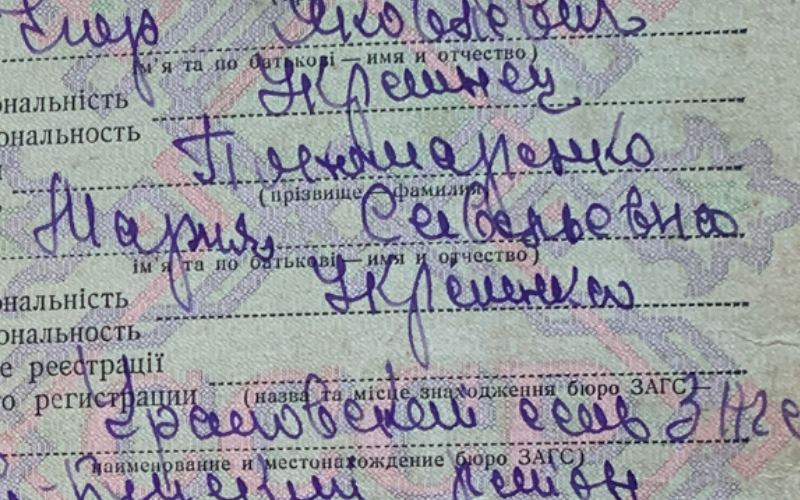 Егор Яковлевич
м'я та по батькові — имя и отчество)
ональність Украинец
ональность
Пономаренко
(прізвище фамилия)
Мария Савельевна
ім'я та по батькові — имя и отчество)
ональність Украинка
ональность
е реєстрації
о регистрации (назва та місце знаходження бюро ЗАГС) —
наименование и местонахождение бюро ЗАГС)
район